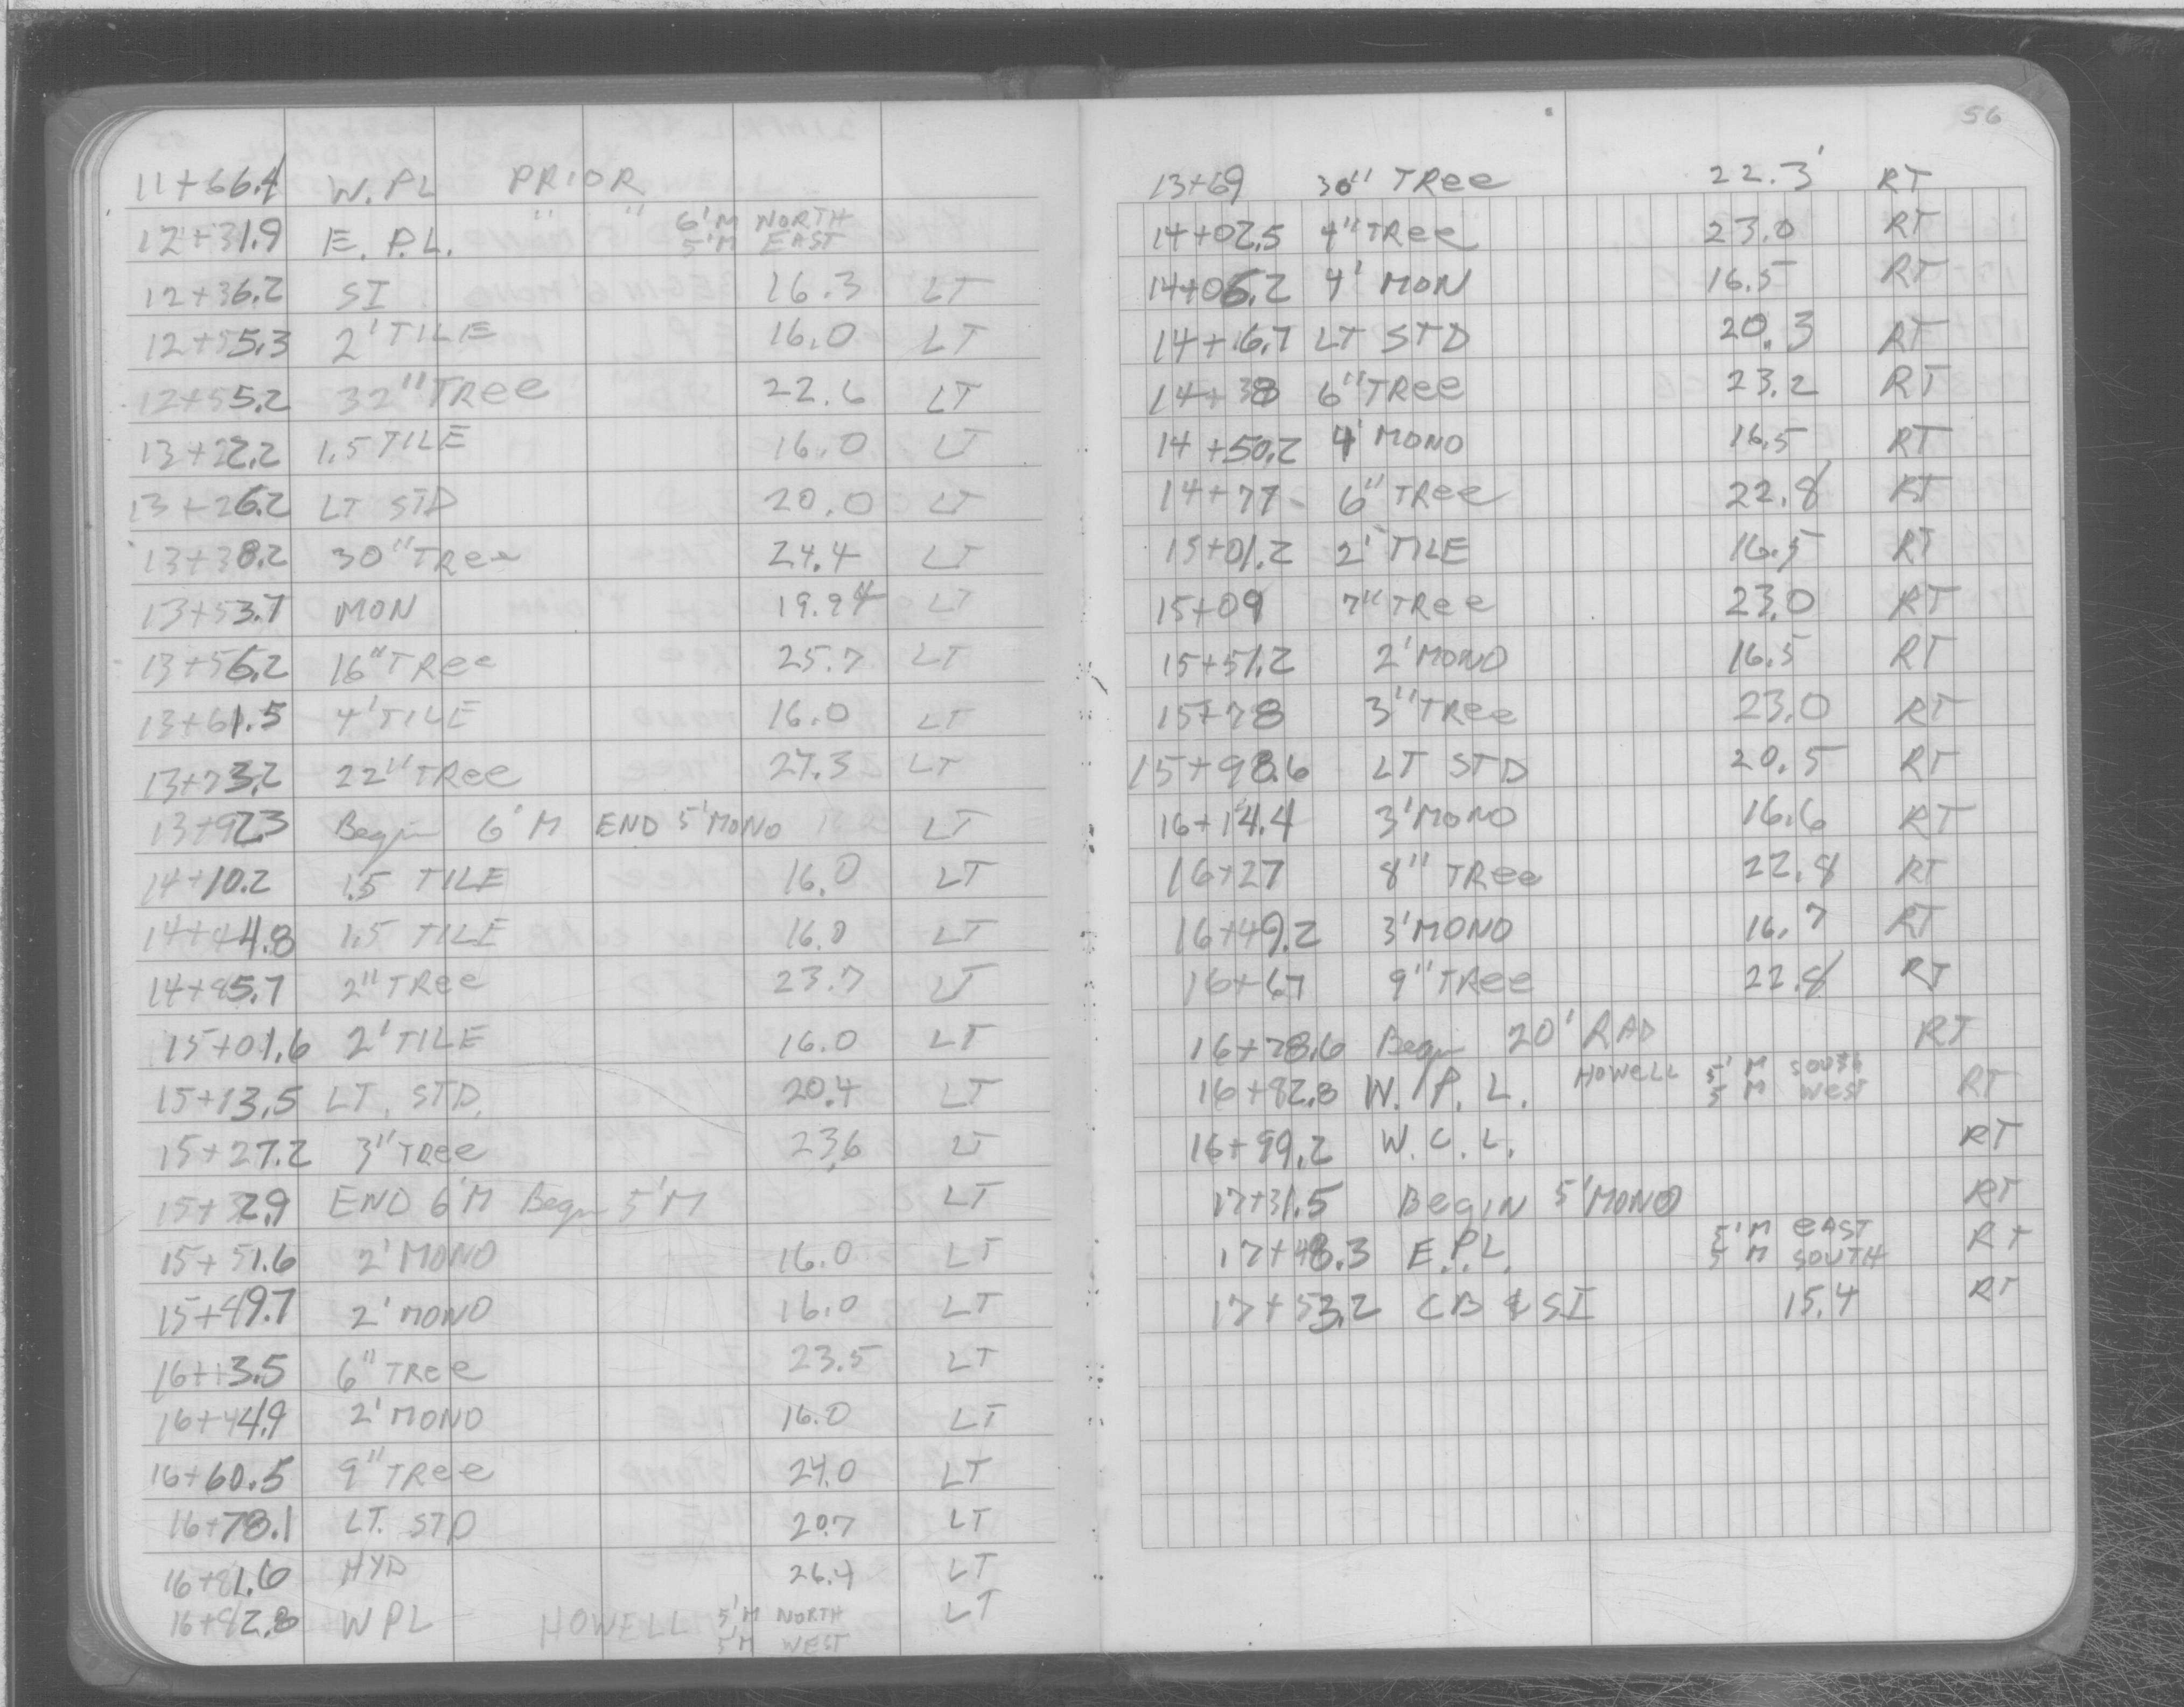 11+66.4 W.PL PRIOR
12+31.9 E. P.L. " " 6'M NORTH
5'M EAST
12+36.2 SI 16.3 LT
12+55.3 2' TILE 16.0 LT
12+55.2 32" TRee 22.6 LT
13+22.2 1.5 TILE 16.0 LT
13+26.2 LT STD 20.0 LT
13+38.2 30" TRee 24.4 LT
13+53.7 MON 19.94 LT
13+56.2 16" TRee 25.7 LT
13+61.5 4' TILE 16.0 LT
13+73.2 22" TRee 27.3 LT
13+92.3 Begin 6'M END 5'MONO LT
14+10.2 1.5 TILE 16.0 LT
14+44.8 1.5 TILE 16.0 LT
14+85.7 2" TRee 23.7 LT
15+01.6 2' TILE 16.0 LT
15+13.5 LT. STD. 20.4 LT
15+27.2 3" TRee 23.6 LT
15+32.9 END 6'M Begin 5'M LT
15+51.6 2' MONO 16.0 LT
15+89.7 2' MONO 16.0 LT
16+13.5 6" TRee 23.5 LT
16+44.9 2' MONO 16.0 LT
16+60.5 9" TRee 24.0 LT
16+78.1 LT. STD 20.7 LT
16+81.6 HYD 26.4 LT
16+82.8 W PL HOWELL 5'M NORTH LT
5'M WEST
56
13+69 30" TRee 22.3' RT
14+02.5 4" TRee 23.0 RT
14+06.2 4' MON 16.5 RT
14+16.7 LT STD 20.3 RT
14+38 6" TRee 23.2 RT
14+50.2 4' MONO 16.5 RT
14+77 6" TRee 22.8 RT
15+01.2 2' TILE 16.5 RT
15+09 7" TRee 23.0 RT
15+51.2 2' MONO 16.5 RT
15+78 3" TRee 23.0 RT
15+98.6 LT STD 20.5 RT
16+14.4 3' MONO 16.6 RT
16+27 8" TRee 22.8 RT
16+49.2 3' MONO 16.7 RT
16+67 9" TRee 22.8 RT
16+78.6 Begin 20' RAD RT
16+82.8 W. P. L. HOWELL 5' M SOUTH RT
5 M WEST
16+99.2 W. C. L. RT
17+31.5 BegIN 5'MONO RT
17+48.3 E.P.L. 5'M EAST RT
5 M SOUTH
17+53.2 CB & SI 15.4 RT